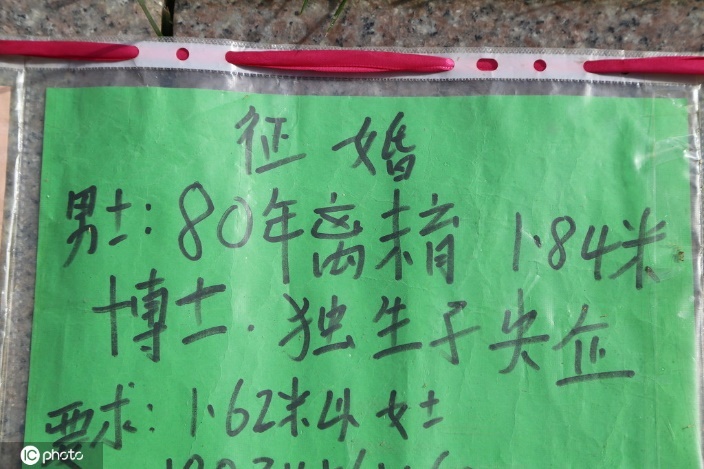 征婚
男士:80年离未育 1.84米
博士.独生子央企
要求:1.62米以女士
iC photo